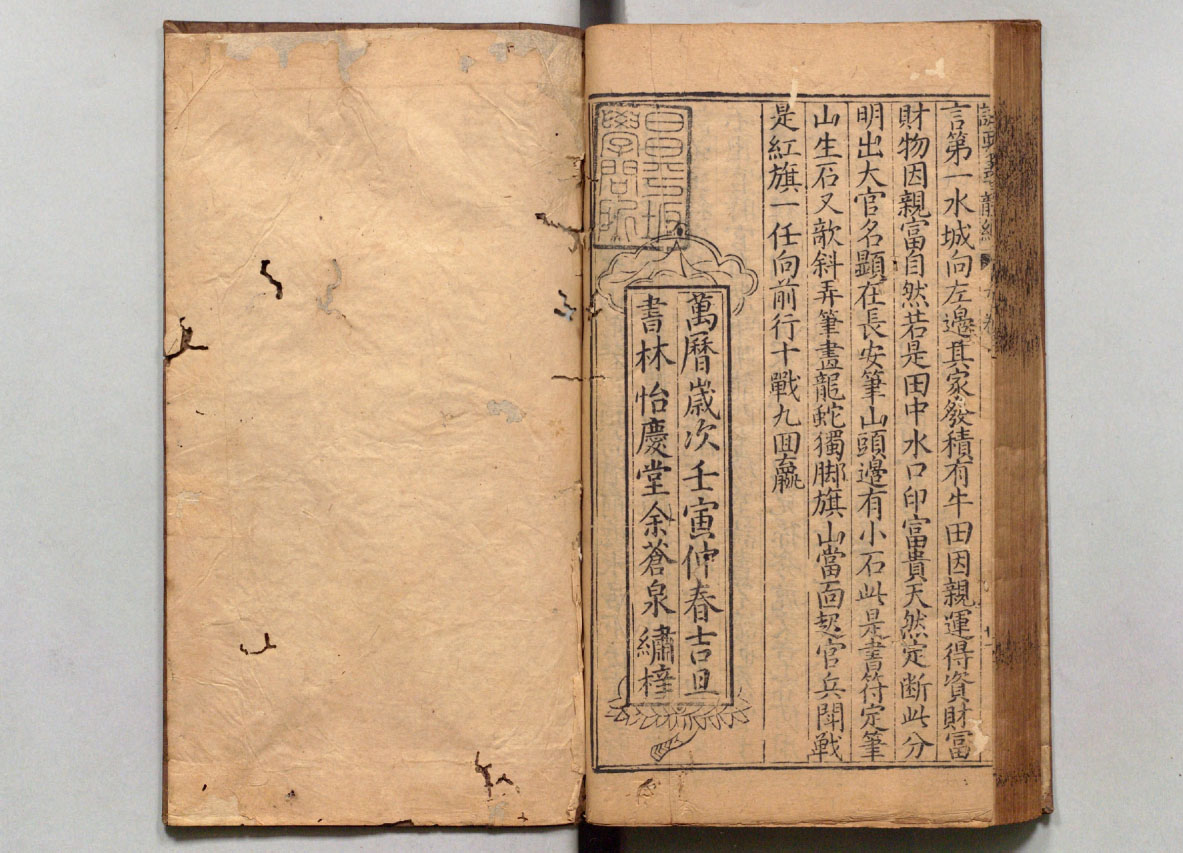 言第一水城向左邉其家發積有牛田因親運得資財富
財物因親富自然若是田中水口印富貴天然定断此分
明出大官名顯在長安筆山頭邉有小石此是書符定筆
山生石又欹斜弄筆畫龍蛇獨脚旗山當面起官兵閗戰
是紅旗一任向前行十戰九囬贏
萬曆嵗次壬寅仲春吉旦
書林怡慶堂余蒼泉繡梓
昌平坂
學問所